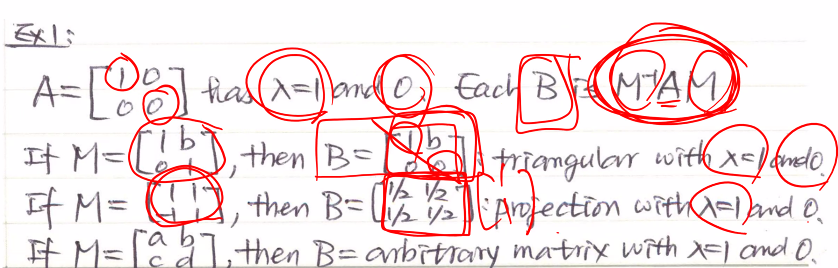 Ex1:
A = [1 0; 0 0] has λ=1 and 0. Each B is M⁻¹AM
If M = [1 b; 0 1], then B = [1 b; 0 0] : triangular with λ=1 and 0.
If M = [1 1; 1], then B = [1/2 1/2; 1/2 1/2] : projection with λ=1 and 0.
If M = [a b; c d], then B = arbitrary matrix with λ=1 and 0.